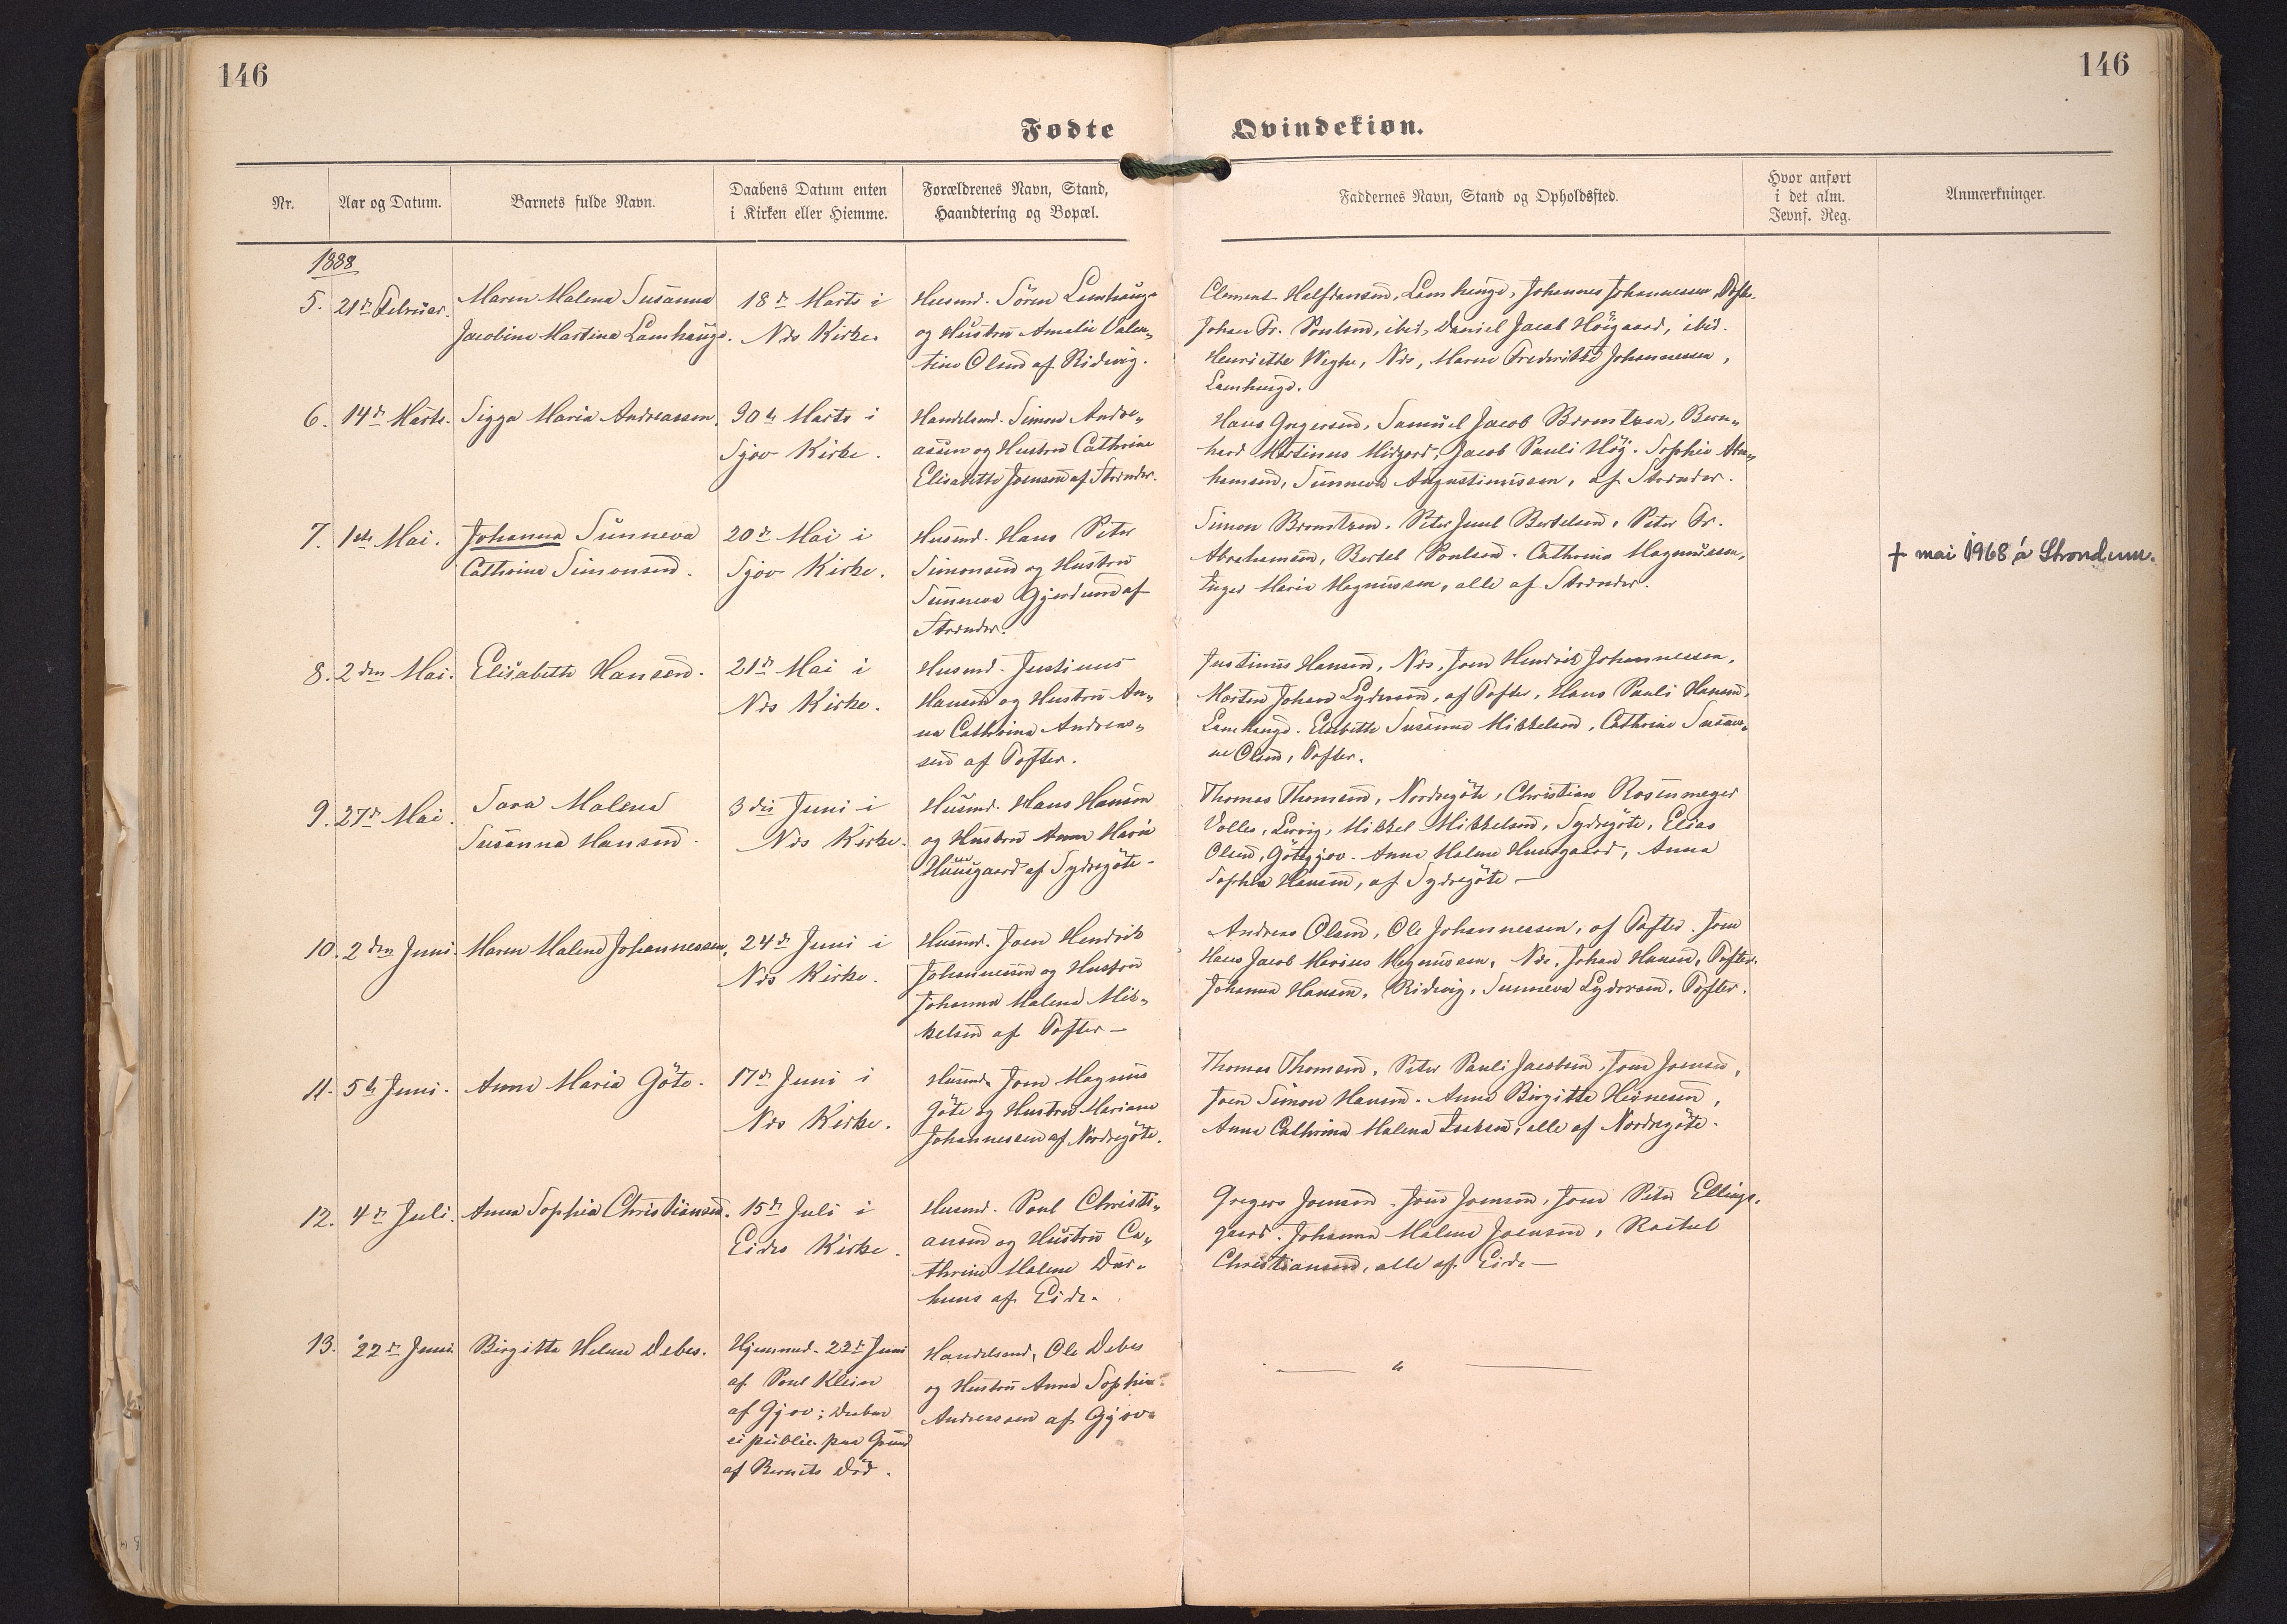 146
146
Fødte Qvindekiøn.
Nr.
Aar og Datum.
Barnets fulde Navn.
Daabens Datum enten
i Kirken eller Hiemme.
Forældrenes Navn, Stand,
Haandtering og Bopæl.
Faddernes Navn, Stand og Opholdssted.
Hvor anført
i det alm.
Jevnf. Reg.
Anmærkninger.
1888
5.
21de Februar.
Maren Malena Susanna
Jacobine Martina Lamhauge.
18de Marts i
Næs Kirke
Husmd. Sören Lamhauge
og Hustru Amalie Valen„
tine Olsen af Ridevig.
Clement Halfdansen, Lamhauge, Johannes Johannessen, Tofte.
Johan Fr. Poulsen, ibid, Daniel Jacob Höigaard, ibid.
Henriette Weyhe, Næs, Maren Frederikke Johannessen,
Lamhauge.
6.
14de Marts.
Sigga Maria Andreassen.
30te Marts i
Sjov Kirke.
Handelsmd. Simon Andre„
assen og Hustru Cathrine
Elisabeth Joensen af Strænder.
Hans Gregersen, Samuel Jacob Bræmtsen, Bern„
hard Martinus Midjord, Jacob Pauli Hög. Sophie Abra„
hamsen, Sunneva Augustinussen, af Strænder.
7.
1ste Mai.
Johanna Sunneva
Cathrine Simonsen.
20de Mai i
Sjov Kirke.
Husmd. Hans Peter
Simonsen og Hustru
Sunneva Gjerdum af
Strænder.
Simon Brænstzen. Peter Juul Bertelsen, Peter Fr.
Abrahamsen, Bertel Poulsen. Cathrine Magnussen,
Inger Marie Magnussen, alle af Strænder.
† mai 1968 á Strondum.
8.
2den Mai.
Elisabeth Hansen.
21de Mai i
Næs Kirke.
Husmd. Justinus
Hansen og Hustru An„
na Cathrina Andreas„
sen af Tofter.
Justinus Hansen, Næs, Joen Hendrik Johannessen,
Morten Johan Lydersen, af Tofte, Hans Pauli Hansen,
Lamhauge. Elsebeth Susanne Mikkelsen, Cathrine Susan„
ne Olsen, Tofter.
9.
27de Mai.
Sara Malena
Susanna Hansen.
3die Juni i
Næs Kirke.
Husmd. Hans Hansen
og Hustru Anna Marie
Huusgaard af Sydregöte.
Thomas Thomsen, Nordregöte, Christian Rosenmeyer
Volles, Lervig, Mikkel Mikkelsen, Sydregöte, Elias
Olsen, Götegjov. Anna Malene Huusgaard, Anna
Sophia Hansen, af Sydregöte —
10.
2den Juni.
Maren Malena Johannessen.
24de Juni i
Næs Kirke.
Husmd. Joen Hendrik
Johannessen og Hustru
Johanna Malena Mik„
kelsen af Tofter —
Andreas Olsen, Ole Johannessen, af Tofter. Joen
Hans Jacob Marius Magnussen, Næs, Johan Hansen, Tofter.
Johanna Hansen, Ridevig, Sunneva Lydersen, Tofter.
11.
5te Juni.
Anna Maria Göte.
17de Juni i
Næs Kirke.
Husmd. Joen Magnus
Göte og Hustru Mariane
Johannessen af Nordregöte.
Thomas Thomsen, Peter Pauli Jacobsen, Joen Joensen,
Joen Simon Hansen. Anna Birgitte Heinesen,
Anna Cathrina Malena Isaksen, alle af Nordregöte.
12.
4de Juli.
Anna Sophia Christiansen.
15de Juli i
Eides Kirke.
Husmd. Poul Christi„
ansen og Hustru Ca„
thrine Malene Dur„
huus af Eide.
Gregers Joensen, Joen Joensen, Joen Peter Ellings„
gaard. Johanna Malene Joensen, Rachel
Christiansen, alle af Eide —
13.
22de Juni
Birgitte Helene Debes.
Hjemmed. 22de Juni
af Poul Klein
af Gjov; Daaben
ei public. paa Grund
af Barnets Död.
Handelsmd. Ole Debes
og Hustru Anna Sophie
Andreassen af Gjov.
— „ —